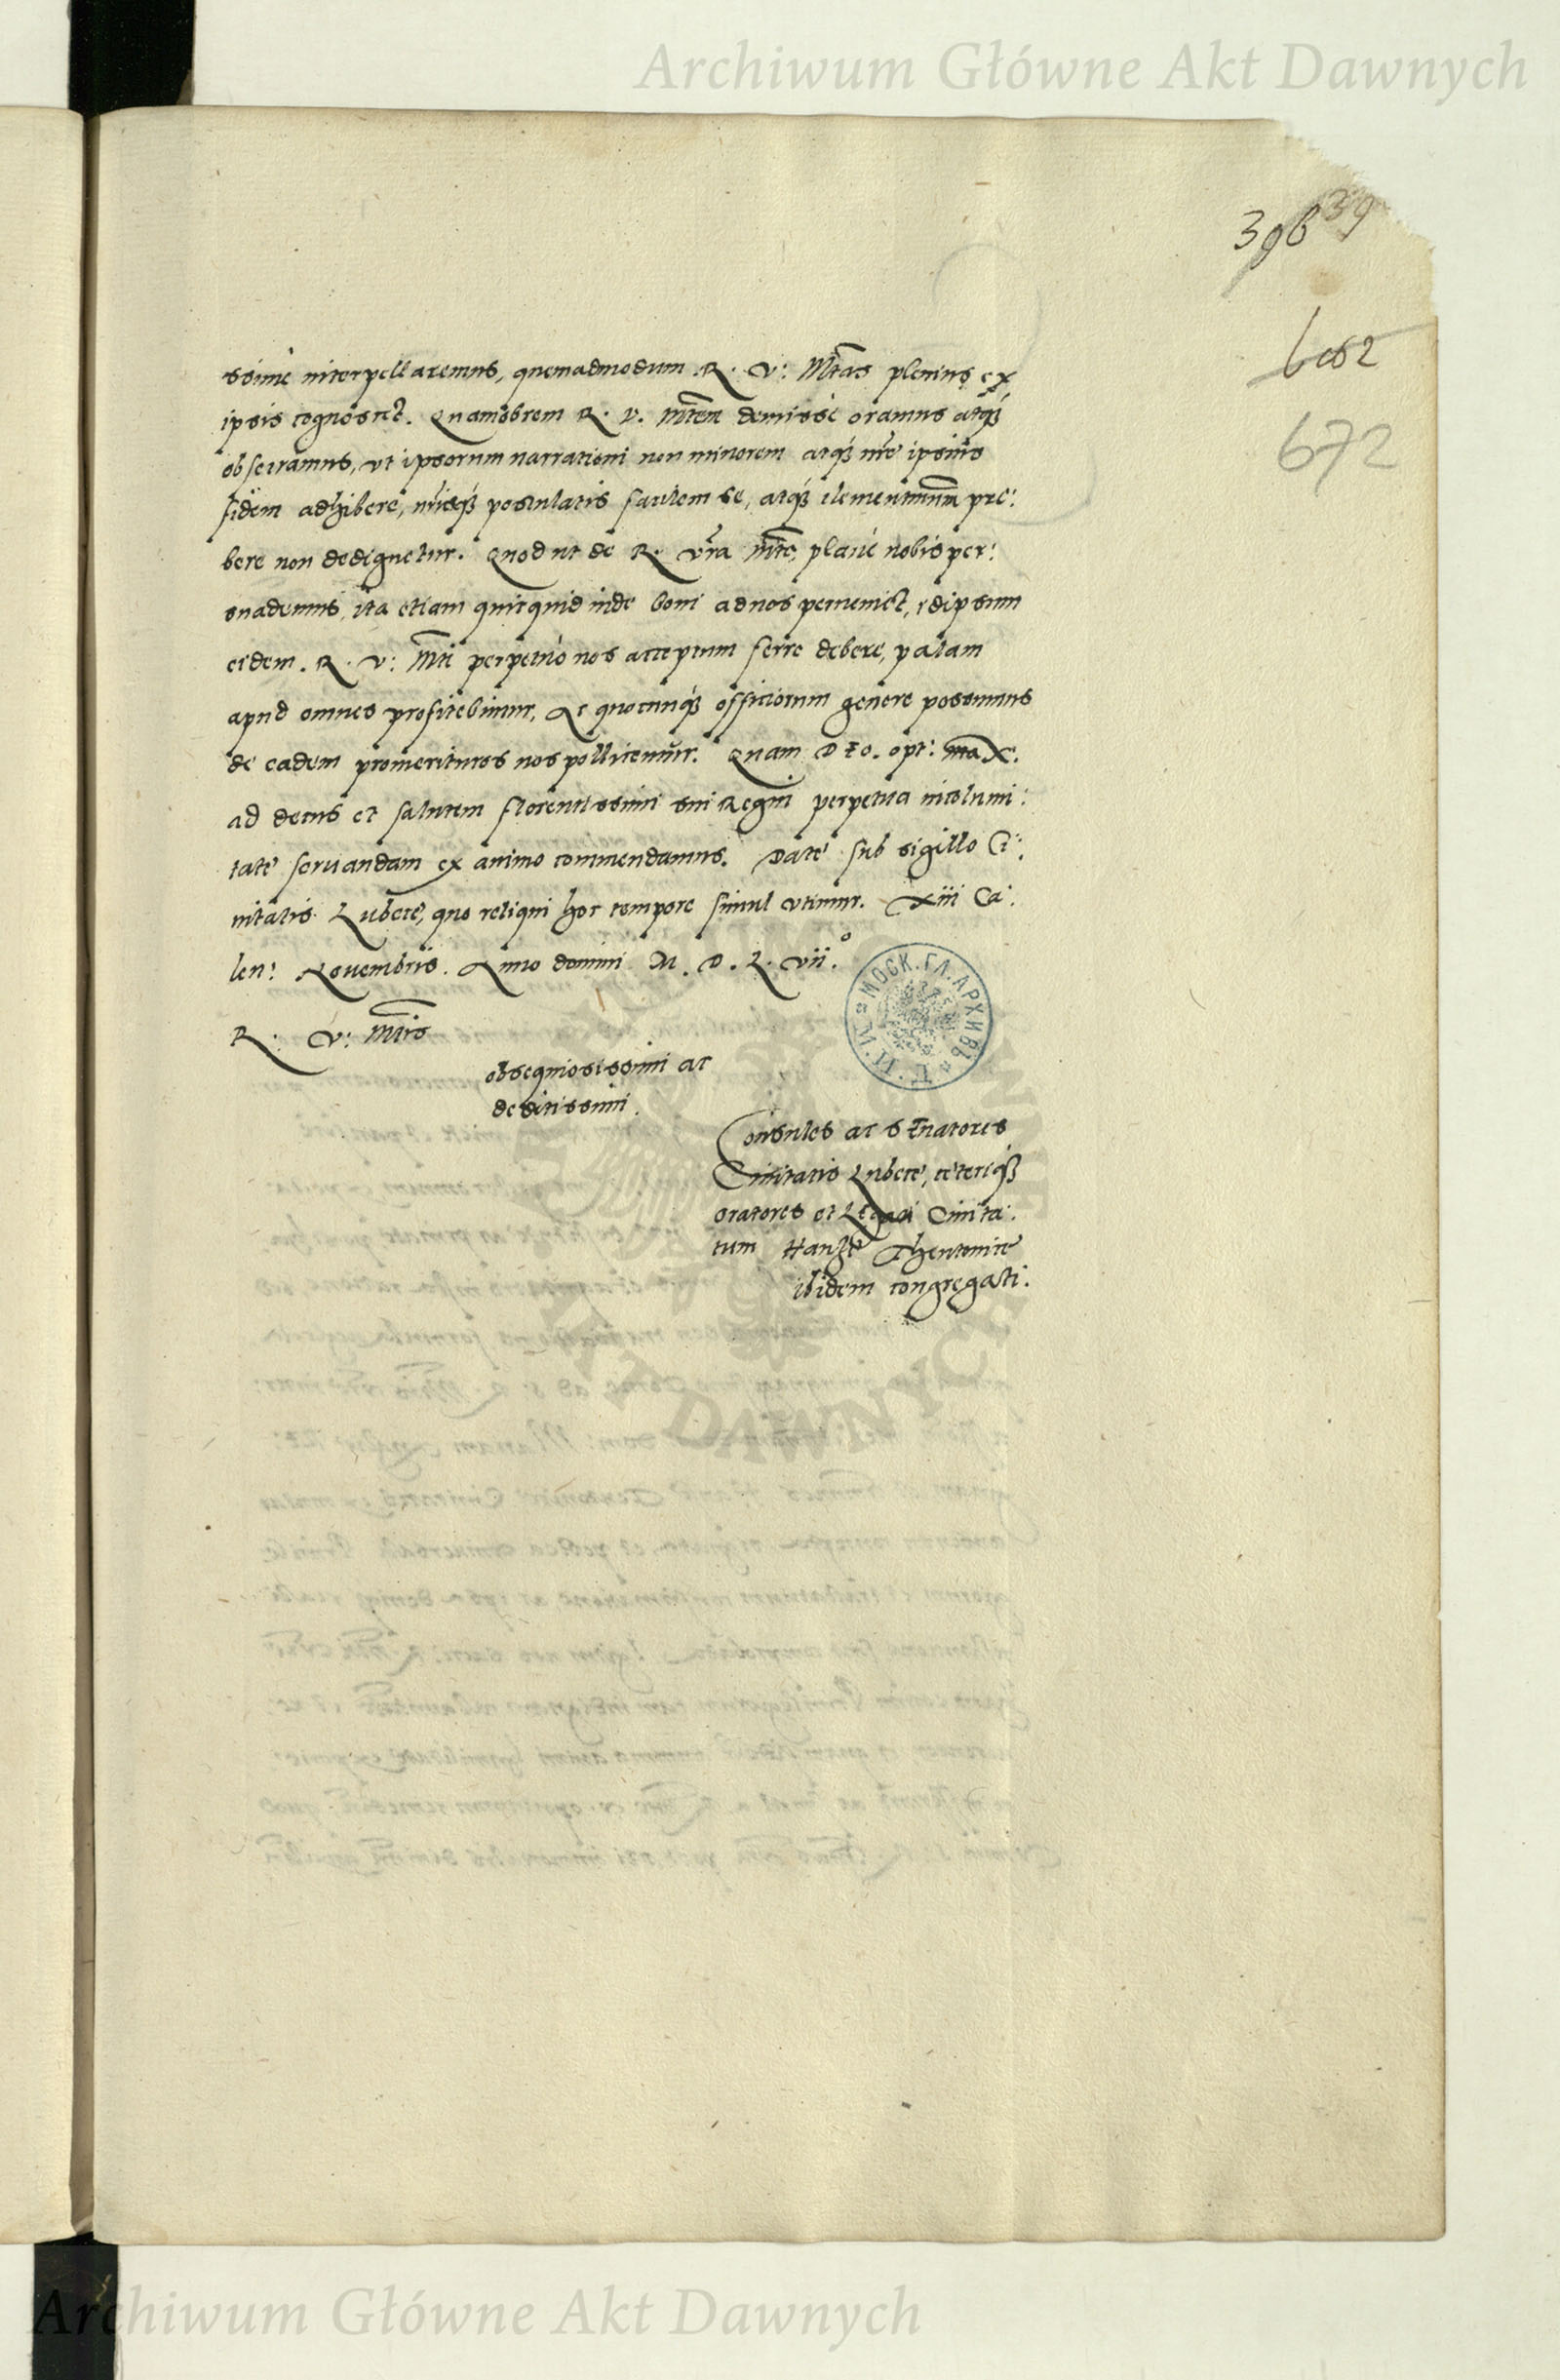 Archiwum Główne Akt Dawnych
396 39
652
672
ssimè interpellaremus, quemadmodum R. V: Mtas plenius ex
ipsis cognoscet. Quamobrem R. V. Mtem demissè oramus atq́ꝫ
obsecramus, vt ipsorum narrationi non minorem atq́ꝫ nr̄e ipsius
fidem adhibere, nr̄isq́ꝫ postulatis facilem se, atq́ꝫ clementem pre:
bere non dedignetur. Quod ut de R. Vr̄a Mte, planè nobis per:
suademus, ita etiam quicquid inde boni ad nos perueniet, idipsum
eidem. R. V: Mti perpetuò nos acceptum ferre debere, palam
apud omnes profitebimur, Ac quocunq́ꝫ officiorum genere possumus
de eadem promerituros nos pollicemur. Quam DEO. opt: max:
ad decus et salutem florentissimi sui Regni perpetua incolumi:
tate seruandam ex animo commendamus. Datè sub sigillo Ci:
uitatis Lubecè, quo reliqui hoc tempore simul vtimur. Xiii Ca:
len: Nouembris. Anno domini M. D. L. vii.º
R. V: Mtis
obsequiosissimi ac
deditissimi.
Consules ac sEnatores
Ciuitatis Lubecè, cèteriq́ꝫ
oratores et Legati Ciuita:
tum Hanzè Theutonicè
ibidem congregati.
МОСК. ГЛ. АРХИВЪ
AKT DAWNYCH
Archiwum Główne Akt Dawnych